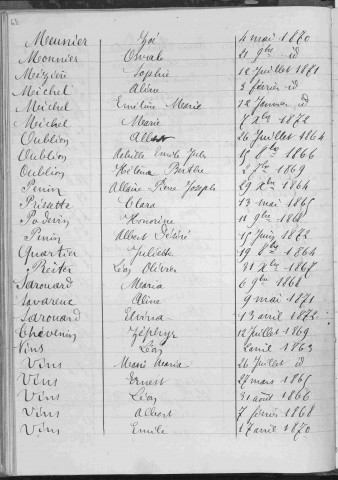 Meunier Zoé 4 mai 1870
Monnier Osvald 21 9bre id
Mézière Sophie 12 Juillet 1871
Michel Aline 3 février id
Michel Emeline Marie 12 Janvier id
Michel Marie 8 Xbre 1872
Oublion Albert 26 Juillet 1864
Oublion Achille Emile Jules 15 8bre 1866
Oublion Héléna Berthe 2 7bre 1869
Penin Allaire Pierre Joseph 29 Xbre 1864
Prissette Clara 13 mai 1865
Podevin Honorine 11 9bre 1868
Penin Albert Désiré 15 Juin 1872
Quartier Juliette 19 8bre 1864
Reiter Léon Olivier 31 Xbre 1868
Sarouard Maria 6 9bre 1868
Savarene Aline 9 mai 1871
Sarouard Elvina 13 avril 1872
Thévenin Zéphyr 12 Juillet 1869
Vins Léon 2 avril 1863
Vins Marie Maria 26 Juillet id
Vins Ernest 27 mars 1865
Vins Léon 31 août 1866
Vins Albert 7 février 1868
Vins Emile 17 avril 1870